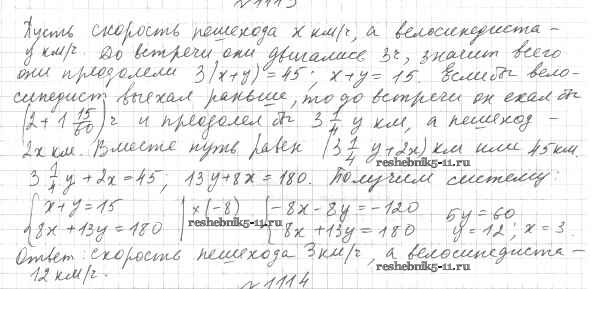 № 1113
Пусть скорость пешехода x км/ч, а велосипедиста –
y км/ч. До встречи они двигались 3ч, значит всего
они преодолели 3(x+y)=45; x+y=15. Если бы вело-
сипедист выехал раньше, то до встречи он ехал бы
(2+1 15/60)ч и преодолел бы 3 1/4 y км, а пешеход –
2x км. Вместе путь равен (3 1/4 y+2x) км или 45 км.
reshebnik5-11.ru
3 1/4 y+2x=45, 13y+8x=180. Получим систему:
{x+y=15 |x(-8) {-8x-8y=-120 5y=60
{8x+13y=180 | {8x+13y=180 y=12; x=3.
reshebnik5-11.ru
Ответ: скорость пешехода 3км/ч, а велосипедиста –
12 км/ч.
reshebnik5-11.ru
№ 1114